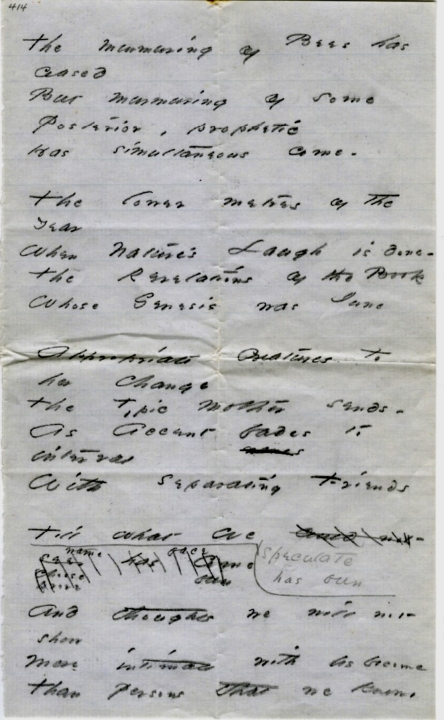 414
The murmuring of Bees has
ceased
But murmuring of some
posterior, prophetic
Has simultaneous come -
The lower metres of the
Year
When Nature's Laugh is done -
The Revelations of the Book
Whose Genesis was June
Appropriate Creatures to
her change
The Typic Mother sends -
As Accent fades to
interval
With separating Friends
Till what we could not
name
speculate
has been
And thoughts we will not
show
More intimate with us become
Than Persons that we know.